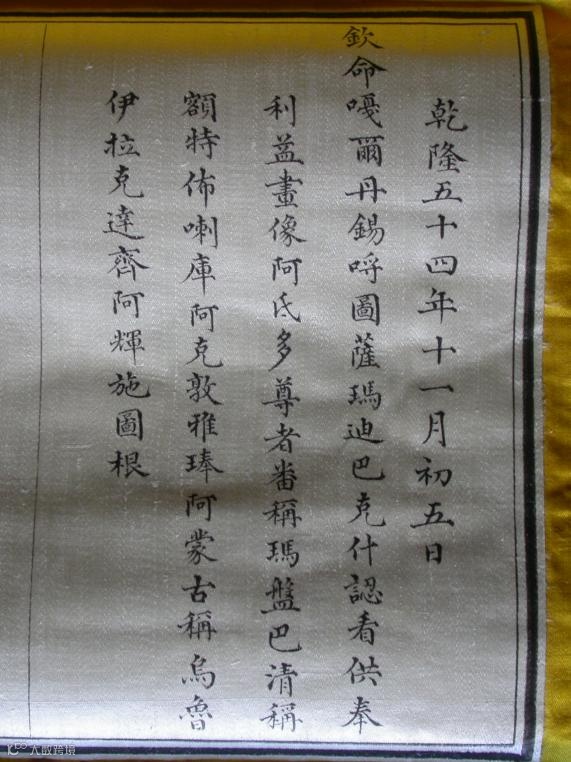 乾隆五十四年十一月初五日
欽命嘎爾丹錫呼圖薩瑪迪巴克什認看供奉
利益畫像阿氐多尊者番稱瑪盤巴清稱
額特佈喇庫阿克敦雅琫阿蒙古稱烏魯
伊拉克達齊阿輝施圖根
大畝跨境